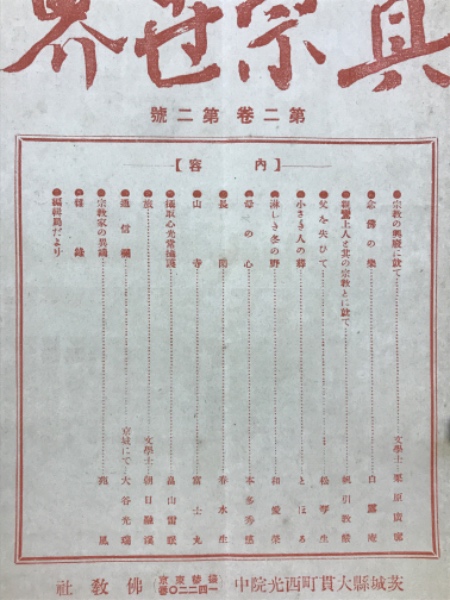 眞宗世界
第二卷 第二號
【内容】
●宗教の興廢に就て 文學士 栗原廣廓
●念佛の樂 白露庵
●親鸞上人と其の宗教とに就て 帆引教船
●父を失ひて 松芽生
●小さき人の群 とほる
●淋しき冬の野 和愛榮
●母の心 本多秀慈
●長閑 春水生
●山寺 富士丸
●攝取心光常攝護 畠山雷
●旅 文學士 朝日融溪
●通信欄 京城にて 大谷光瑞
●宗教家の異論
●雜錄 風
●編輯局だより
茨城縣大貫町西光院中
振替東京
一四二二〇番
佛教社